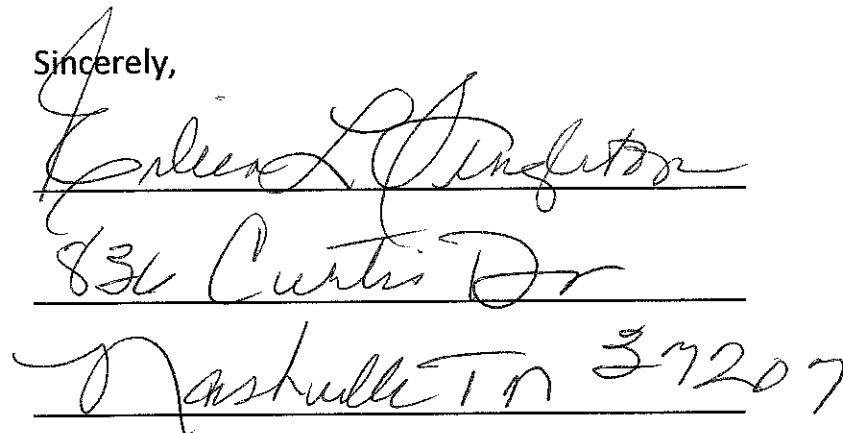 Sincerely,
L. Singleton
836 Curtis Dr
Nashville TN 37207